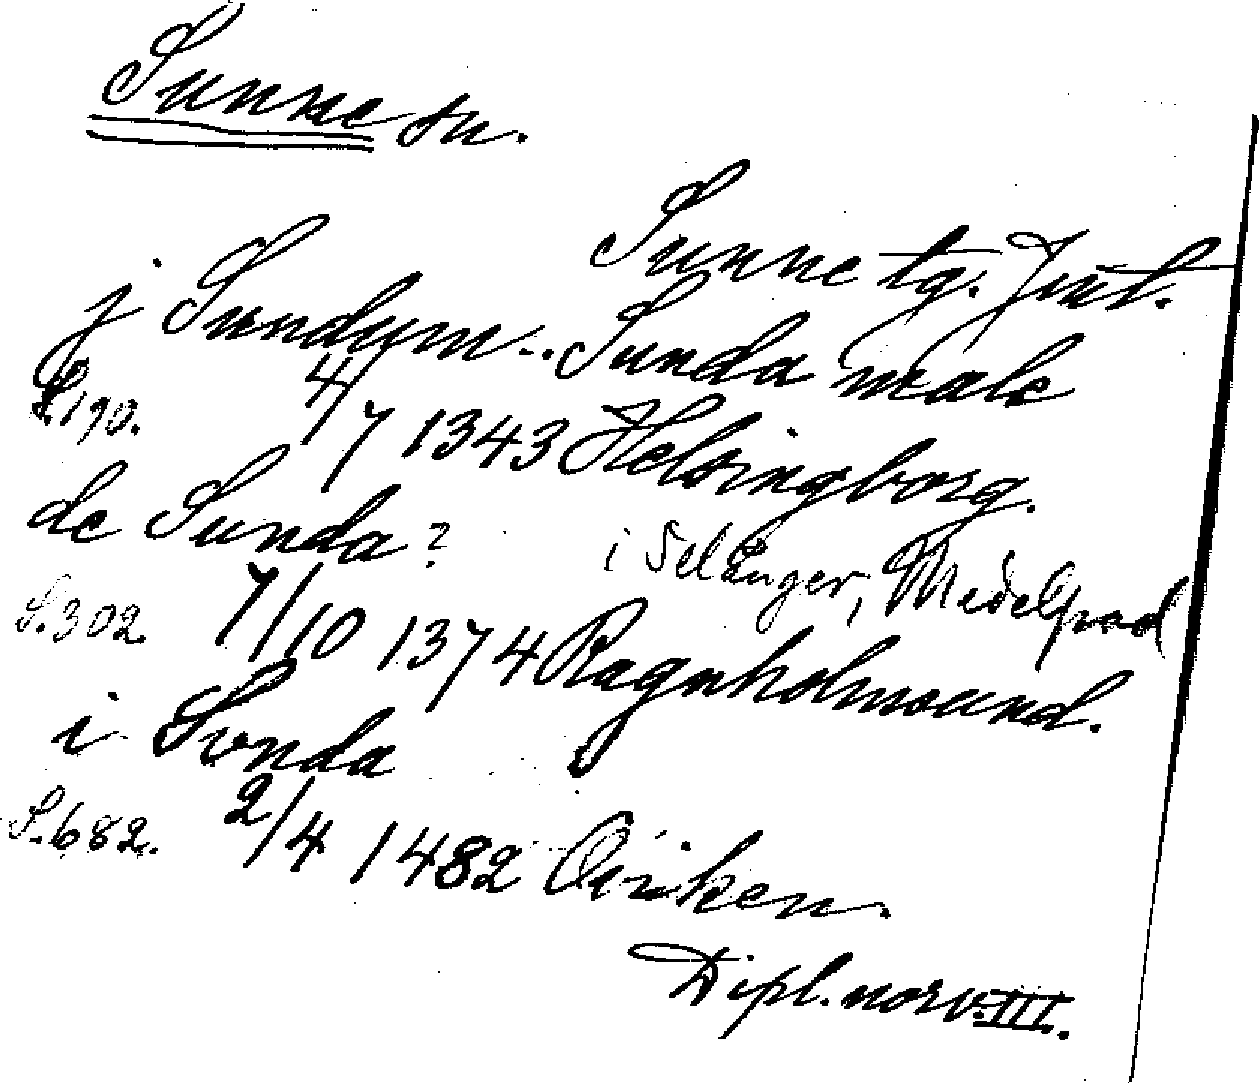 Sunne sn.
Sunne tg. Jmtl.
j Sundum.. Sunda male
S. 190. 4/7 1343 Helsingborg.
de Sunda? i Selånger, Medelpad
S. 302. 7/10 1374 Ragnholmsund.
i Sunda
S. 682. 2/4 1482 Oviken.
Dipl. norv. III.